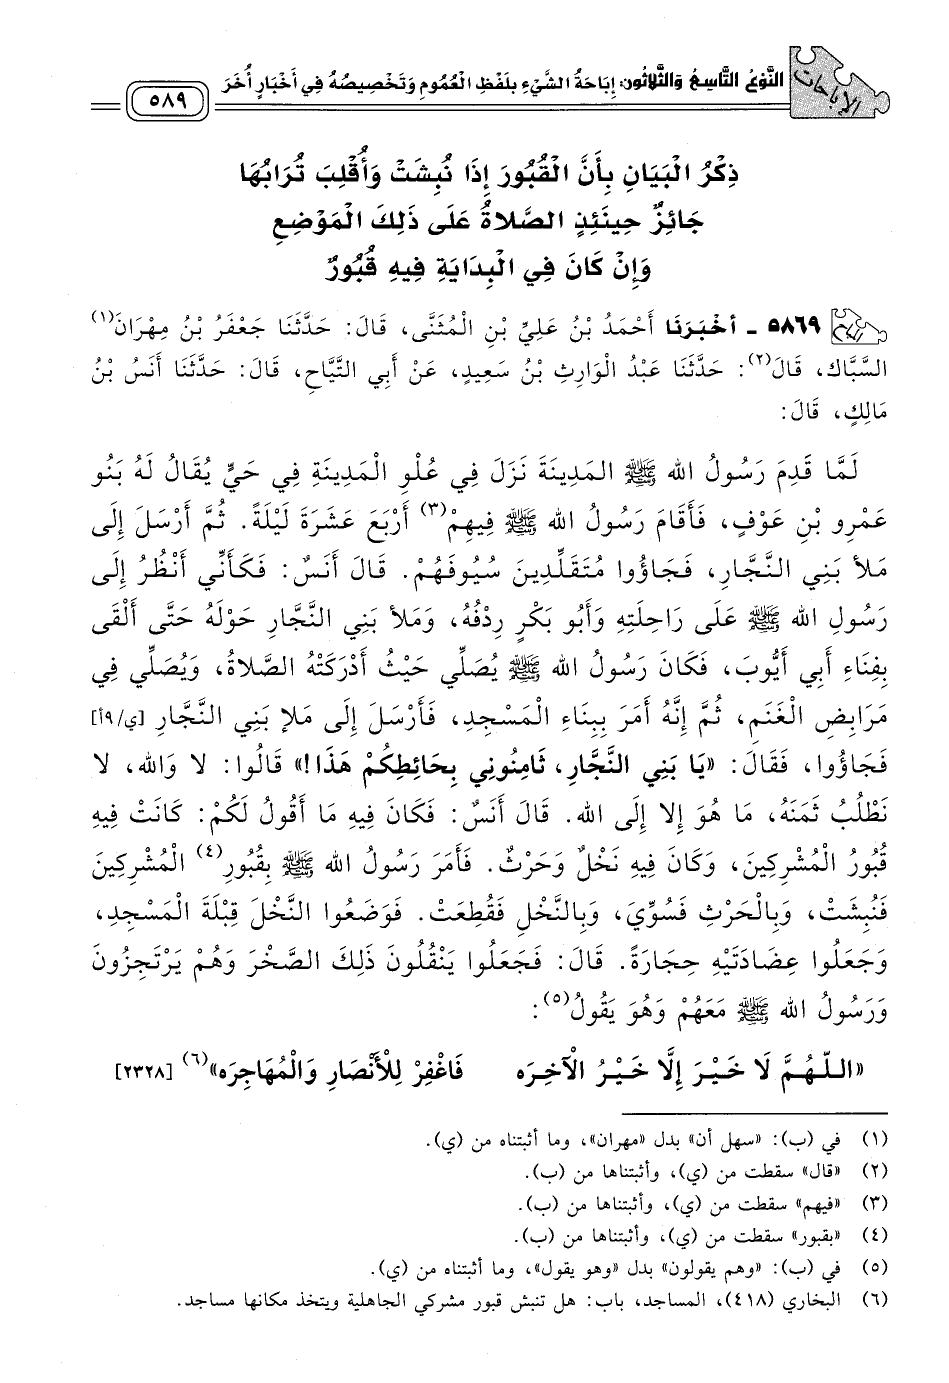 الإباحات
النَّوْعُ التَّاسِعُ وَالثَّلَاثُونَ: إِبَاحَةُ الشَّيْءِ بِلَفْظِ الْعُمُومِ وَتَخْصِيصُهُ فِي أَخْبَارٍ أُخَرَ
٥٨٩
ذِكْرُ الْبَيَانِ بِأَنَّ الْقُبُورَ إِذَا نُبِشَتْ وَأُقْلِبَ تُرَابُهَا
جَائِزٌ حِينَئِذٍ الصَّلَاةُ عَلَى ذَلِكَ الْمَوْضِعِ
وَإِنْ كَانَ فِي الْبِدَايَةِ فِيهِ قُبُورٌ
٥٨٦٩ - أَخْبَرَنَا أَحْمَدُ بْنُ عَلِيِّ بْنِ الْمُثَنَّى، قَالَ: حَدَّثَنَا جَعْفَرُ بْنُ مِهْرَانَ(١)
السَّبَّاك، قَالَ(٢): حَدَّثَنَا عَبْدُ الْوَارِثِ بْنُ سَعِيدٍ، عَنْ أَبِي التَّيَّاحِ، قَالَ: حَدَّثَنَا أَنَسُ بْنُ
مَالِكٍ، قَالَ:
لَمَّا قَدِمَ رَسُولُ الله ﷺ المَدِينَةَ نَزَلَ فِي عُلْوِ الْمَدِينَةِ فِي حَيٍّ يُقَالُ لَهُ بَنُو
عَمْرِو بْنِ عَوْفٍ، فَأَقَامَ رَسُولُ الله ﷺ فِيهِمْ(٣) أَرْبَعَ عَشَرَةَ لَيْلَةً. ثُمَّ أَرْسَلَ إِلَى
مَلأ بَنِي النَّجَّارِ، فَجَاؤُوا مُتَقَلِّدِينَ سُيُوفَهُمْ. قَالَ أَنَسٌ: فَكَأَنِّي أَنْظُرُ إِلَى
رَسُولِ الله ﷺ عَلَى رَاحِلَتِهِ وَأَبُو بَكْرٍ رِدْفُهُ، وَمَلأ بَنِي النَّجَّارِ حَوْلَهُ حَتَّى أَلْقَى
بِفِنَاءِ أَبِي أَيُّوبَ، فَكَانَ رَسُولُ الله ﷺ يُصَلِّي حَيْثُ أَدْرَكَتْهُ الصَّلاةُ، وَيُصَلِّي فِي
مَرَابِضِ الْغَنَمِ، ثُمَّ إِنَّهُ أَمَرَ بِبِنَاءِ الْمَسْجِدِ، فَأَرْسَلَ إِلَى مَلإ بَنِي النَّجَّارِ [ي/٩أ]
فَجَاؤُوا، فَقَالَ: «يَا بَنِي النَّجَّارِ، ثَامِنُونِي بِحَائِطِكُمْ هَذَا!» قَالُوا: لا وَالله، لا
نَطْلُبُ ثَمَنَهُ، مَا هُوَ إِلا إِلَى الله. قَالَ أَنَسٌ: فَكَانَ فِيهِ مَا أَقُولُ لَكُمْ: كَانَتْ فِيهِ
قُبُورُ الْمُشْرِكِينَ، وَكَانَ فِيهِ نَخْلٌ وَحَرْثٌ. فَأَمَرَ رَسُولُ الله ﷺ بِقُبُورِ(٤) الْمُشْرِكِينَ
فَنُبِشَتْ، وَبِالْحَرْثِ فَسُوِّيَ، وَبِالنَّخْلِ فَقُطِعَتْ. فَوَضَعُوا النَّخْلَ قِبْلَةَ الْمَسْجِدِ،
وَجَعَلُوا عِضَادَتَيْهِ حِجَارَةً. قَالَ: فَجَعَلُوا يَنْقُلُونَ ذَلِكَ الصَّخْرَ وَهُمْ يَرْتَجِزُونَ
وَرَسُولُ الله ﷺ مَعَهُمْ وَهُوَ يَقُولُ(٥):
«اللّهُمَّ لَا خَيْرَ إِلَّا خَيْرُ الْآخِرَه فَاغْفِرْ لِلْأَنْصَارِ وَالْمُهَاجِرَه»(٦) [٢٣٢٨]
(١) في (ب): «سهل أن» بدل «مهران»، وما أثبتناه من (ي).
(٢) «قال» سقطت من (ي)، وأثبتناها من (ب).
(٣) «فيهم» سقطت من (ي)، وأثبتناها من (ب).
(٤) «بقبور» سقطت من (ي)، وأثبتناها من (ب).
(٥) في (ب): «وهم يقولون» بدل «وهو يقول»، وما أثبتناه من (ي).
(٦) البخاري (٤١٨)، المساجد، باب: هل تنبش قبور مشركي الجاهلية ويتخذ مكانها مساجد.